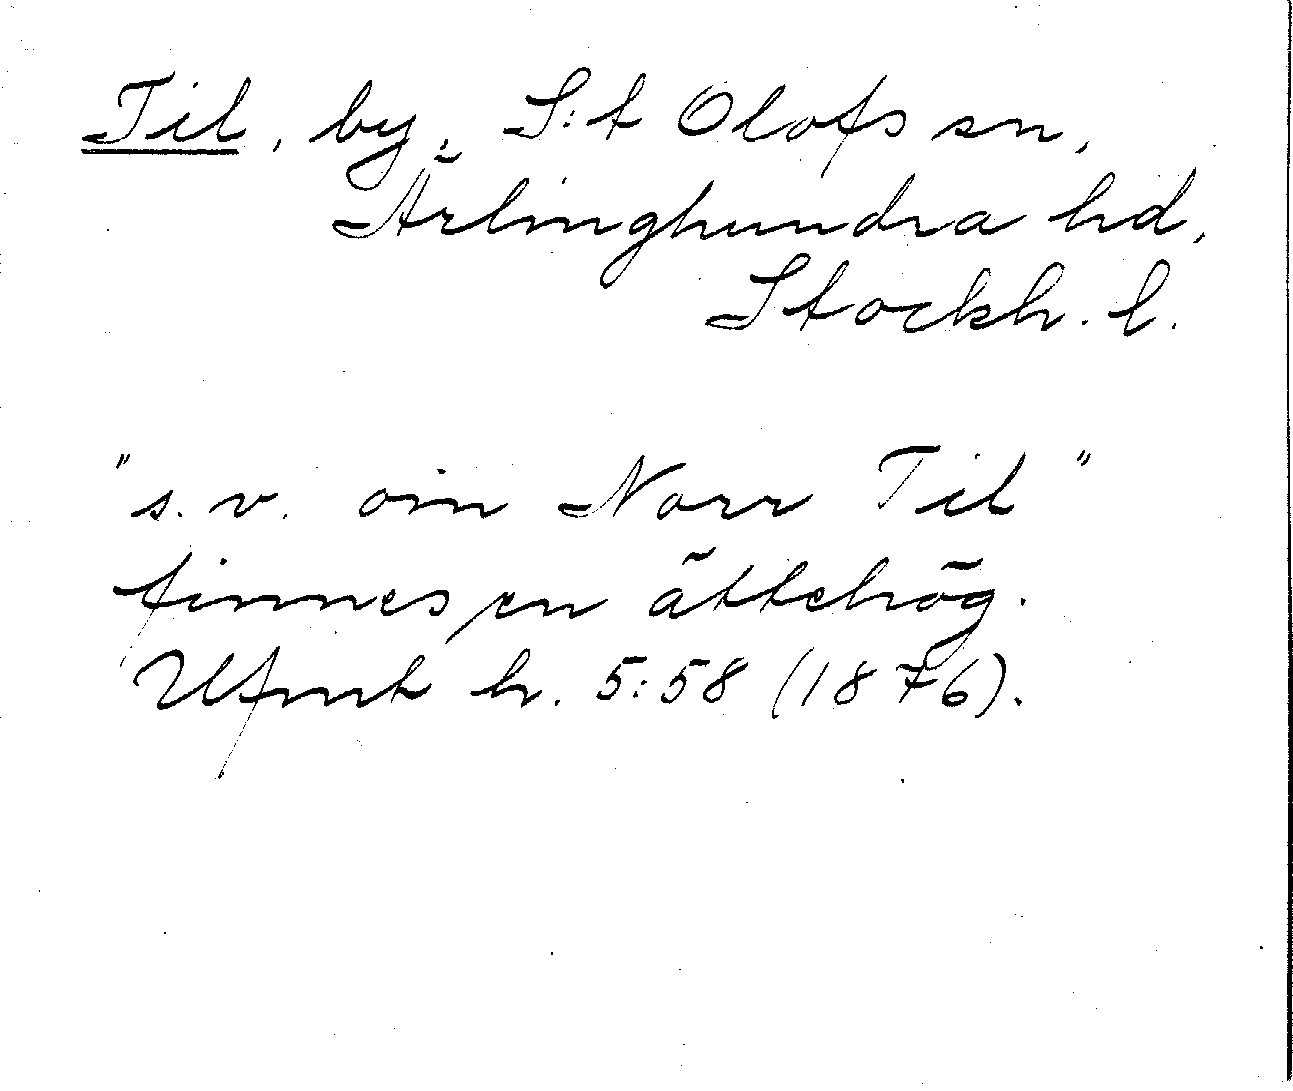 Til, by, S:t Olofs sn,
Ärlinghundra hd,
Stockh. l.
"s. v. om Norr Til"
finnes en ättehög.
Ufmt h. 5:58 (1876).